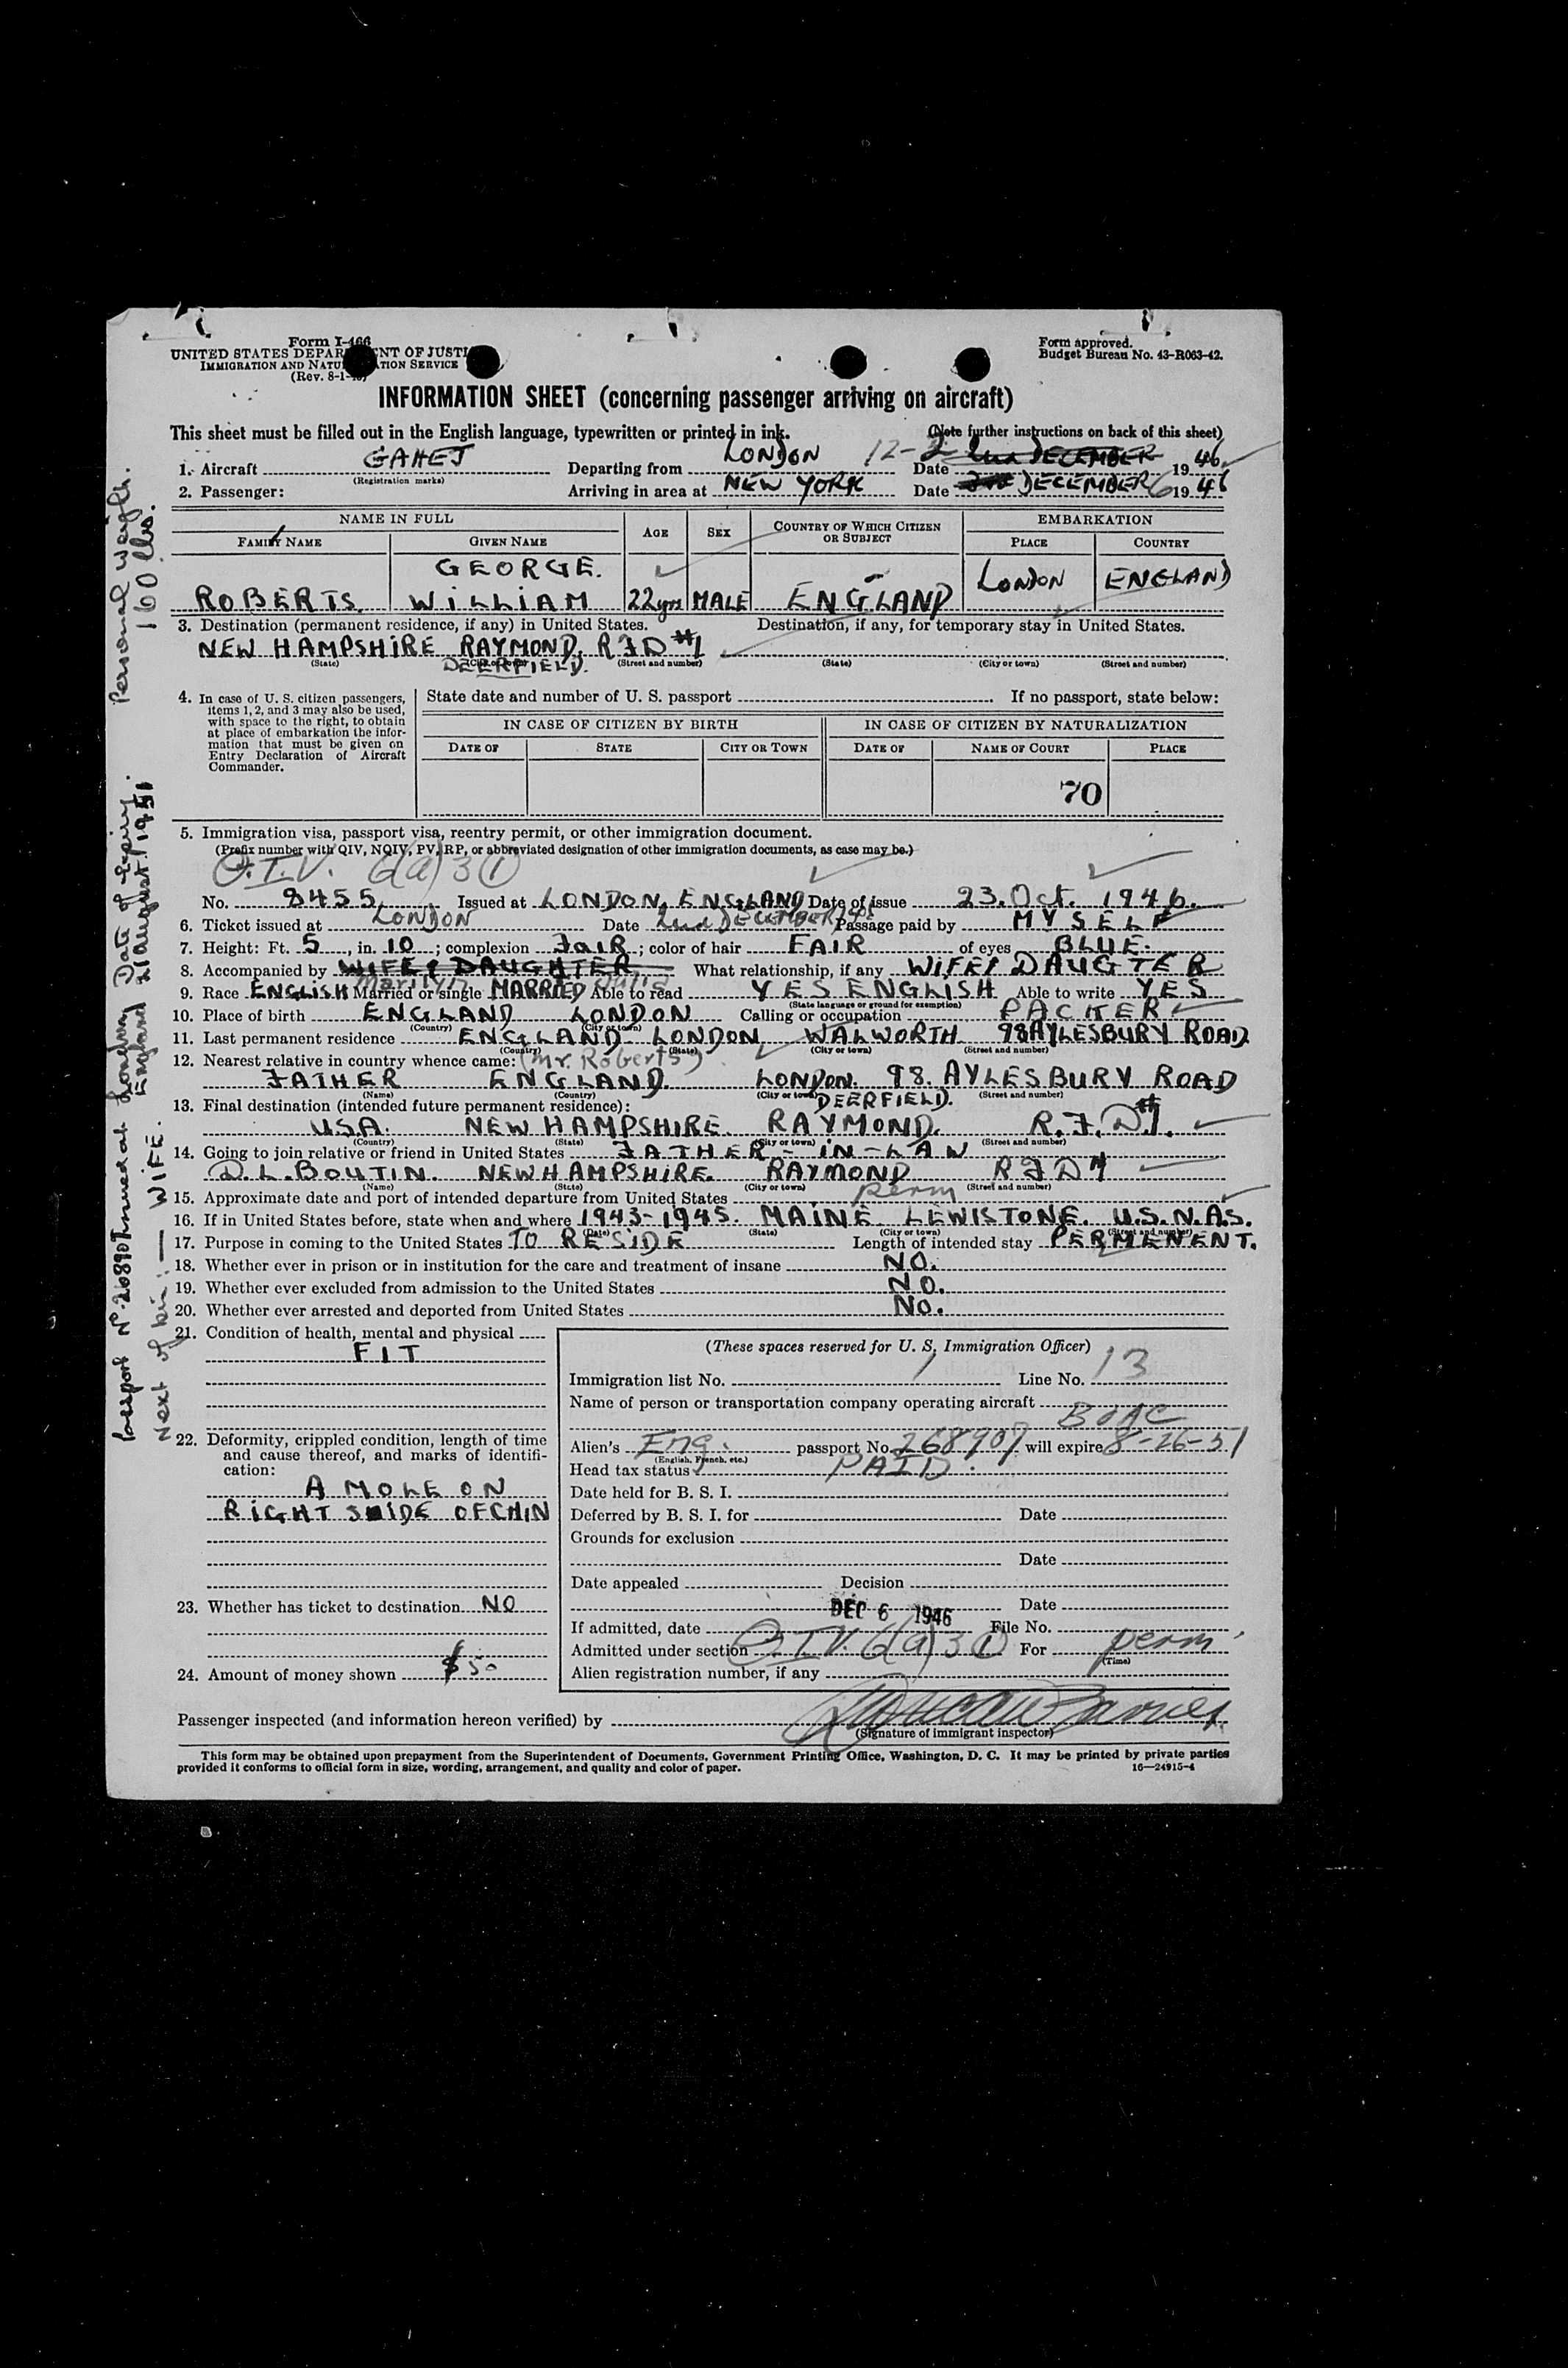 Form I-466
UNITED STATES DEPARTMENT OF JUSTICE
IMMIGRATION AND NATURALIZATION SERVICE
(Rev. 8-1-
Form approved.
Budget Bureau No. 43-R063-42.
INFORMATION SHEET (concerning passenger arriving on aircraft)
This sheet must be filled out in the English language, typewritten or printed in ink.
(Note further instructions on back of this sheet)
1. Aircraft GAHEJ Departing from LONDON 12-2 Date 2nd DECEMBER 1946
(Registration marks)
2. Passenger: Arriving in area at NEW YORK Date DECEMBER 6 1946
NAME IN FULL AGE SEX COUNTRY OF WHICH CITIZEN OR SUBJECT EMBARKATION
FAMILY NAME GIVEN NAME PLACE COUNTRY
ROBERTS. GEORGE. WILLIAM 22yrs MALE ENGLAND LONDON ENGLAND
3. Destination (permanent residence, if any) in United States. Destination, if any, for temporary stay in United States.
NEW HAMPSHIRE RAYMOND. RFD #1
(State) (City or town) (Street and number) (State) (City or town) (Street and number)
DEERFIELD.
4. In case of U. S. citizen passengers, items 1, 2, and 3 may also be used, with space to the right, to obtain at place of embarkation the information that must be given on Entry Declaration of Aircraft Commander.
State date and number of U. S. passport If no passport, state below:
IN CASE OF CITIZEN BY BIRTH IN CASE OF CITIZEN BY NATURALIZATION
DATE OF STATE CITY OR TOWN DATE OF NAME OF COURT PLACE
70
5. Immigration visa, passport visa, reentry permit, or other immigration document.
(Prefix number with QIV, NQIV, PV, RP, or abbreviated designation of other immigration documents, as case may be.)
Q.I.V. 6(a)3(1)
No. 8455 Issued at LONDON, ENGLAND Date of issue 23. Oct. 1946.
6. Ticket issued at LONDON Date 2nd DECEMBER Passage paid by MYSELF
7. Height: Ft. 5, in. 10; complexion FAIR; color of hair FAIR of eyes BLUE.
8. Accompanied by WIFE & DAUGHTER What relationship, if any WIFE & DAUGTER
Marilyn Julia
9. Race ENGLISH Married or single MARRIED Able to read YES ENGLISH Able to write YES
(State language or ground for exemption)
10. Place of birth ENGLAND LONDON Calling or occupation PACKER
(Country) (City or town)
11. Last permanent residence ENGLAND LONDON WALWORTH 98 AYLESBURY ROAD
(Country) (State) (City or town) (Street and number)
12. Nearest relative in country whence came: (Mr. Roberts)
FATHER ENGLAND. LONDON. 98. AYLESBURY ROAD
(Name) (Country) (City or town) (Street and number)
13. Final destination (intended future permanent residence): DEERFIELD.
USA. NEW HAMPSHIRE. RAYMOND. R.F.D #1.
(Country) (State) (City or town) (Street and number)
14. Going to join relative or friend in United States FATHER-IN-LAW
D.L. BOUTIN. NEW HAMPSHIRE. RAYMOND RFD #1
(Name) (State) (City or town) (Street and number)
15. Approximate date and port of intended departure from United States perm
16. If in United States before, state when and where 1943-1945. MAINE LEWISTONE. U.S.N.A.S.
(Date) (State) (City or town) (Street and number)
17. Purpose in coming to the United States TO RESIDE Length of intended stay PERMENENT.
18. Whether ever in prison or in institution for the care and treatment of insane NO.
19. Whether ever excluded from admission to the United States NO.
20. Whether ever arrested and deported from United States NO.
21. Condition of health, mental and physical
FIT
22. Deformity, crippled condition, length of time and cause thereof, and marks of identification:
A MOLE ON
RIGHT SIDE OF CHIN
23. Whether has ticket to destination NO
24. Amount of money shown $50
(These spaces reserved for U. S. Immigration Officer)
Immigration list No. 1 Line No. 13
Name of person or transportation company operating aircraft
BOAC
Alien's Eng. passport No. 268907 will expire 8-26-51
(English, French, etc.)
Head tax status PAID.
Date held for B. S. I.
Deferred by B. S. I. for Date
Grounds for exclusion
Date
Date appealed Decision
Date
If admitted, date DEC 6 1946 File No.
Admitted under section Q.I.V. 6(a)3(1) For perm
(Time)
Alien registration number, if any
Passenger inspected (and information hereon verified) by
(Signature of immigrant inspector)
This form may be obtained upon prepayment from the Superintendent of Documents, Government Printing Office, Washington, D. C. It may be printed by private parties
provided it conforms to official form in size, wording, arrangement, and quality and color of paper.
16—24915-4
Personal Weight.
160 lbs.
Passport No. 268907 issued at London, Date of Expiry.
England 21 August 1951
Next of kin:— WIFE.